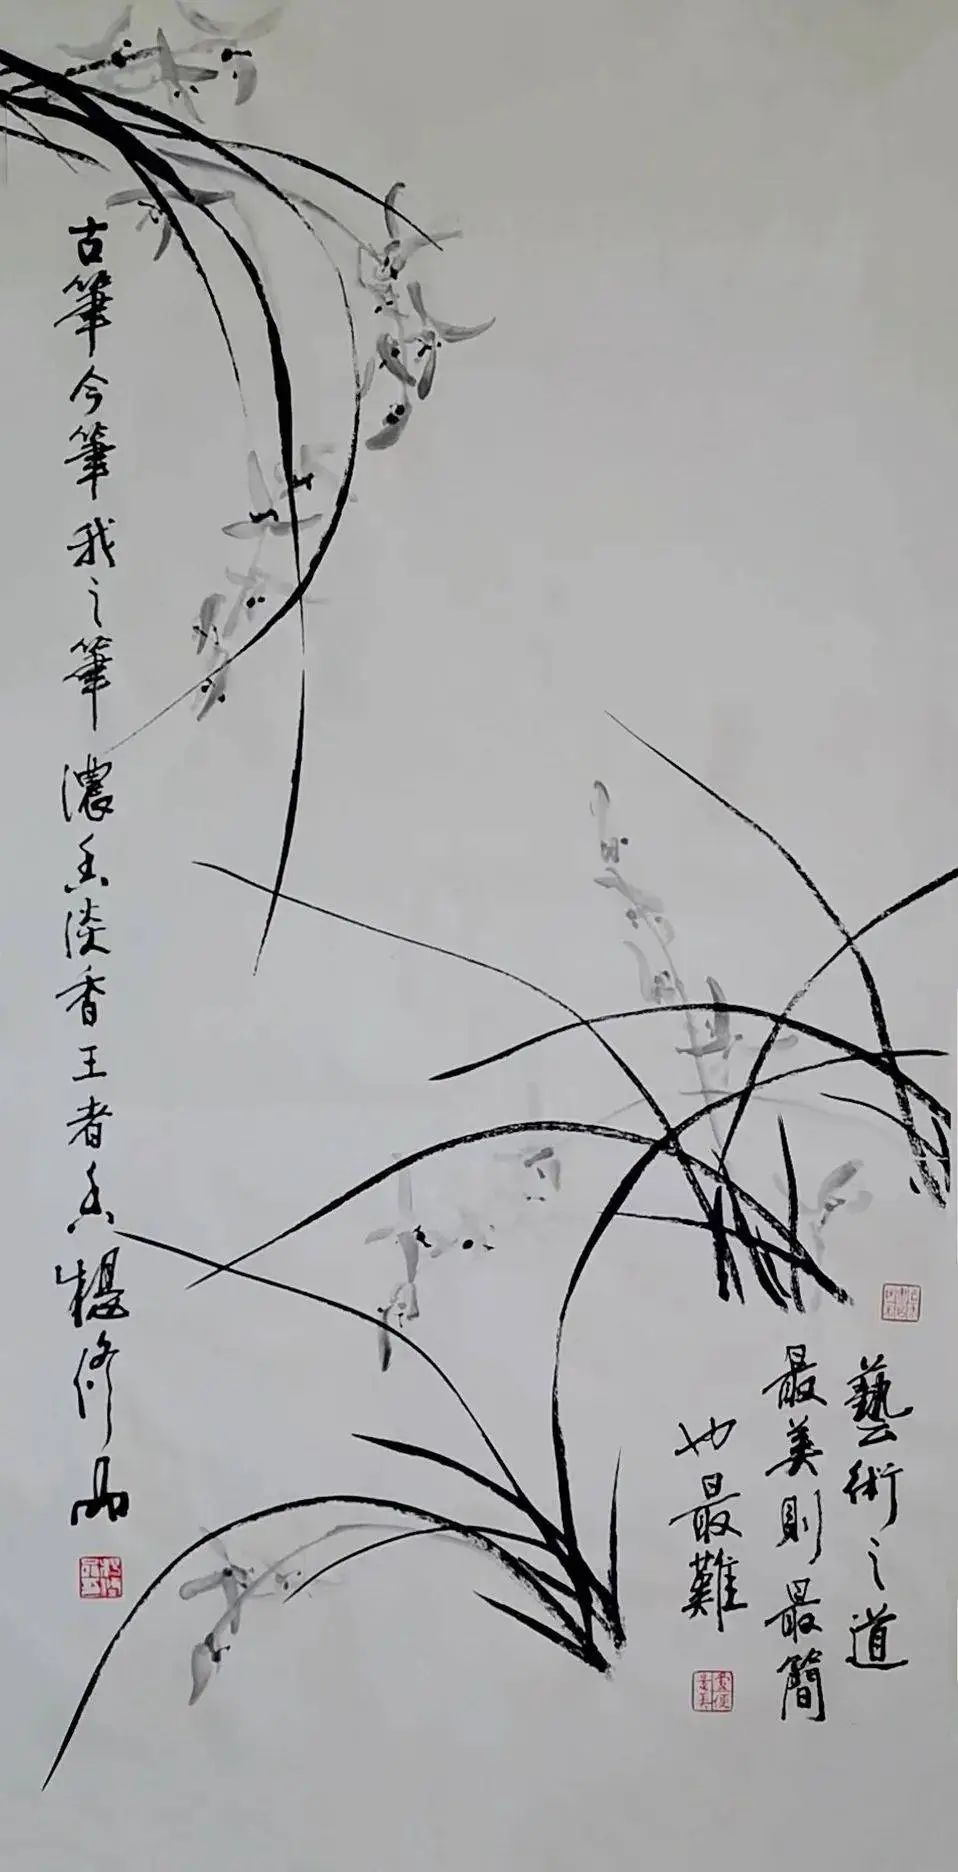 藝術之道
最美則最簡
也最難
古筆今筆我之筆濃香淡香王者香楊修品